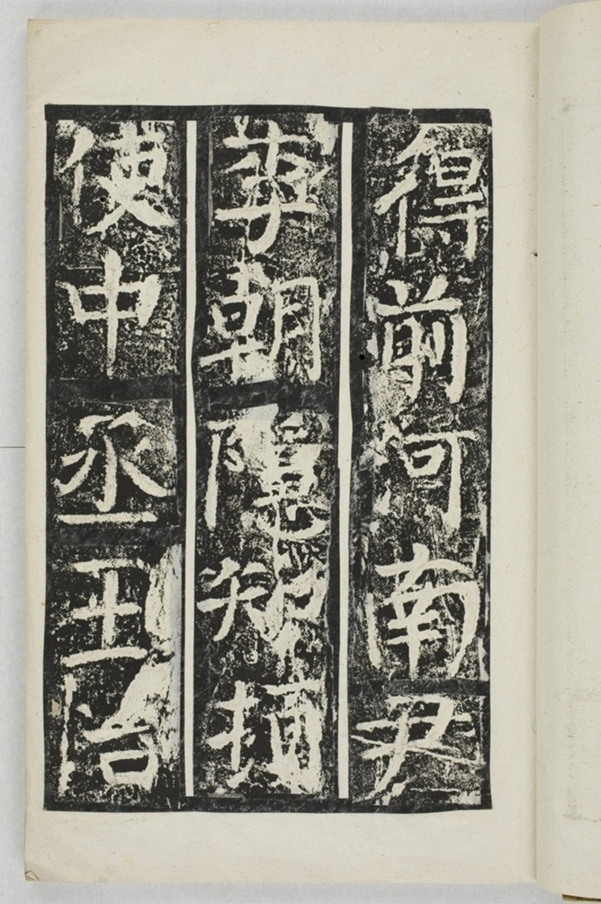 得前河南尹
李朝隱知捕
使中丞王怡